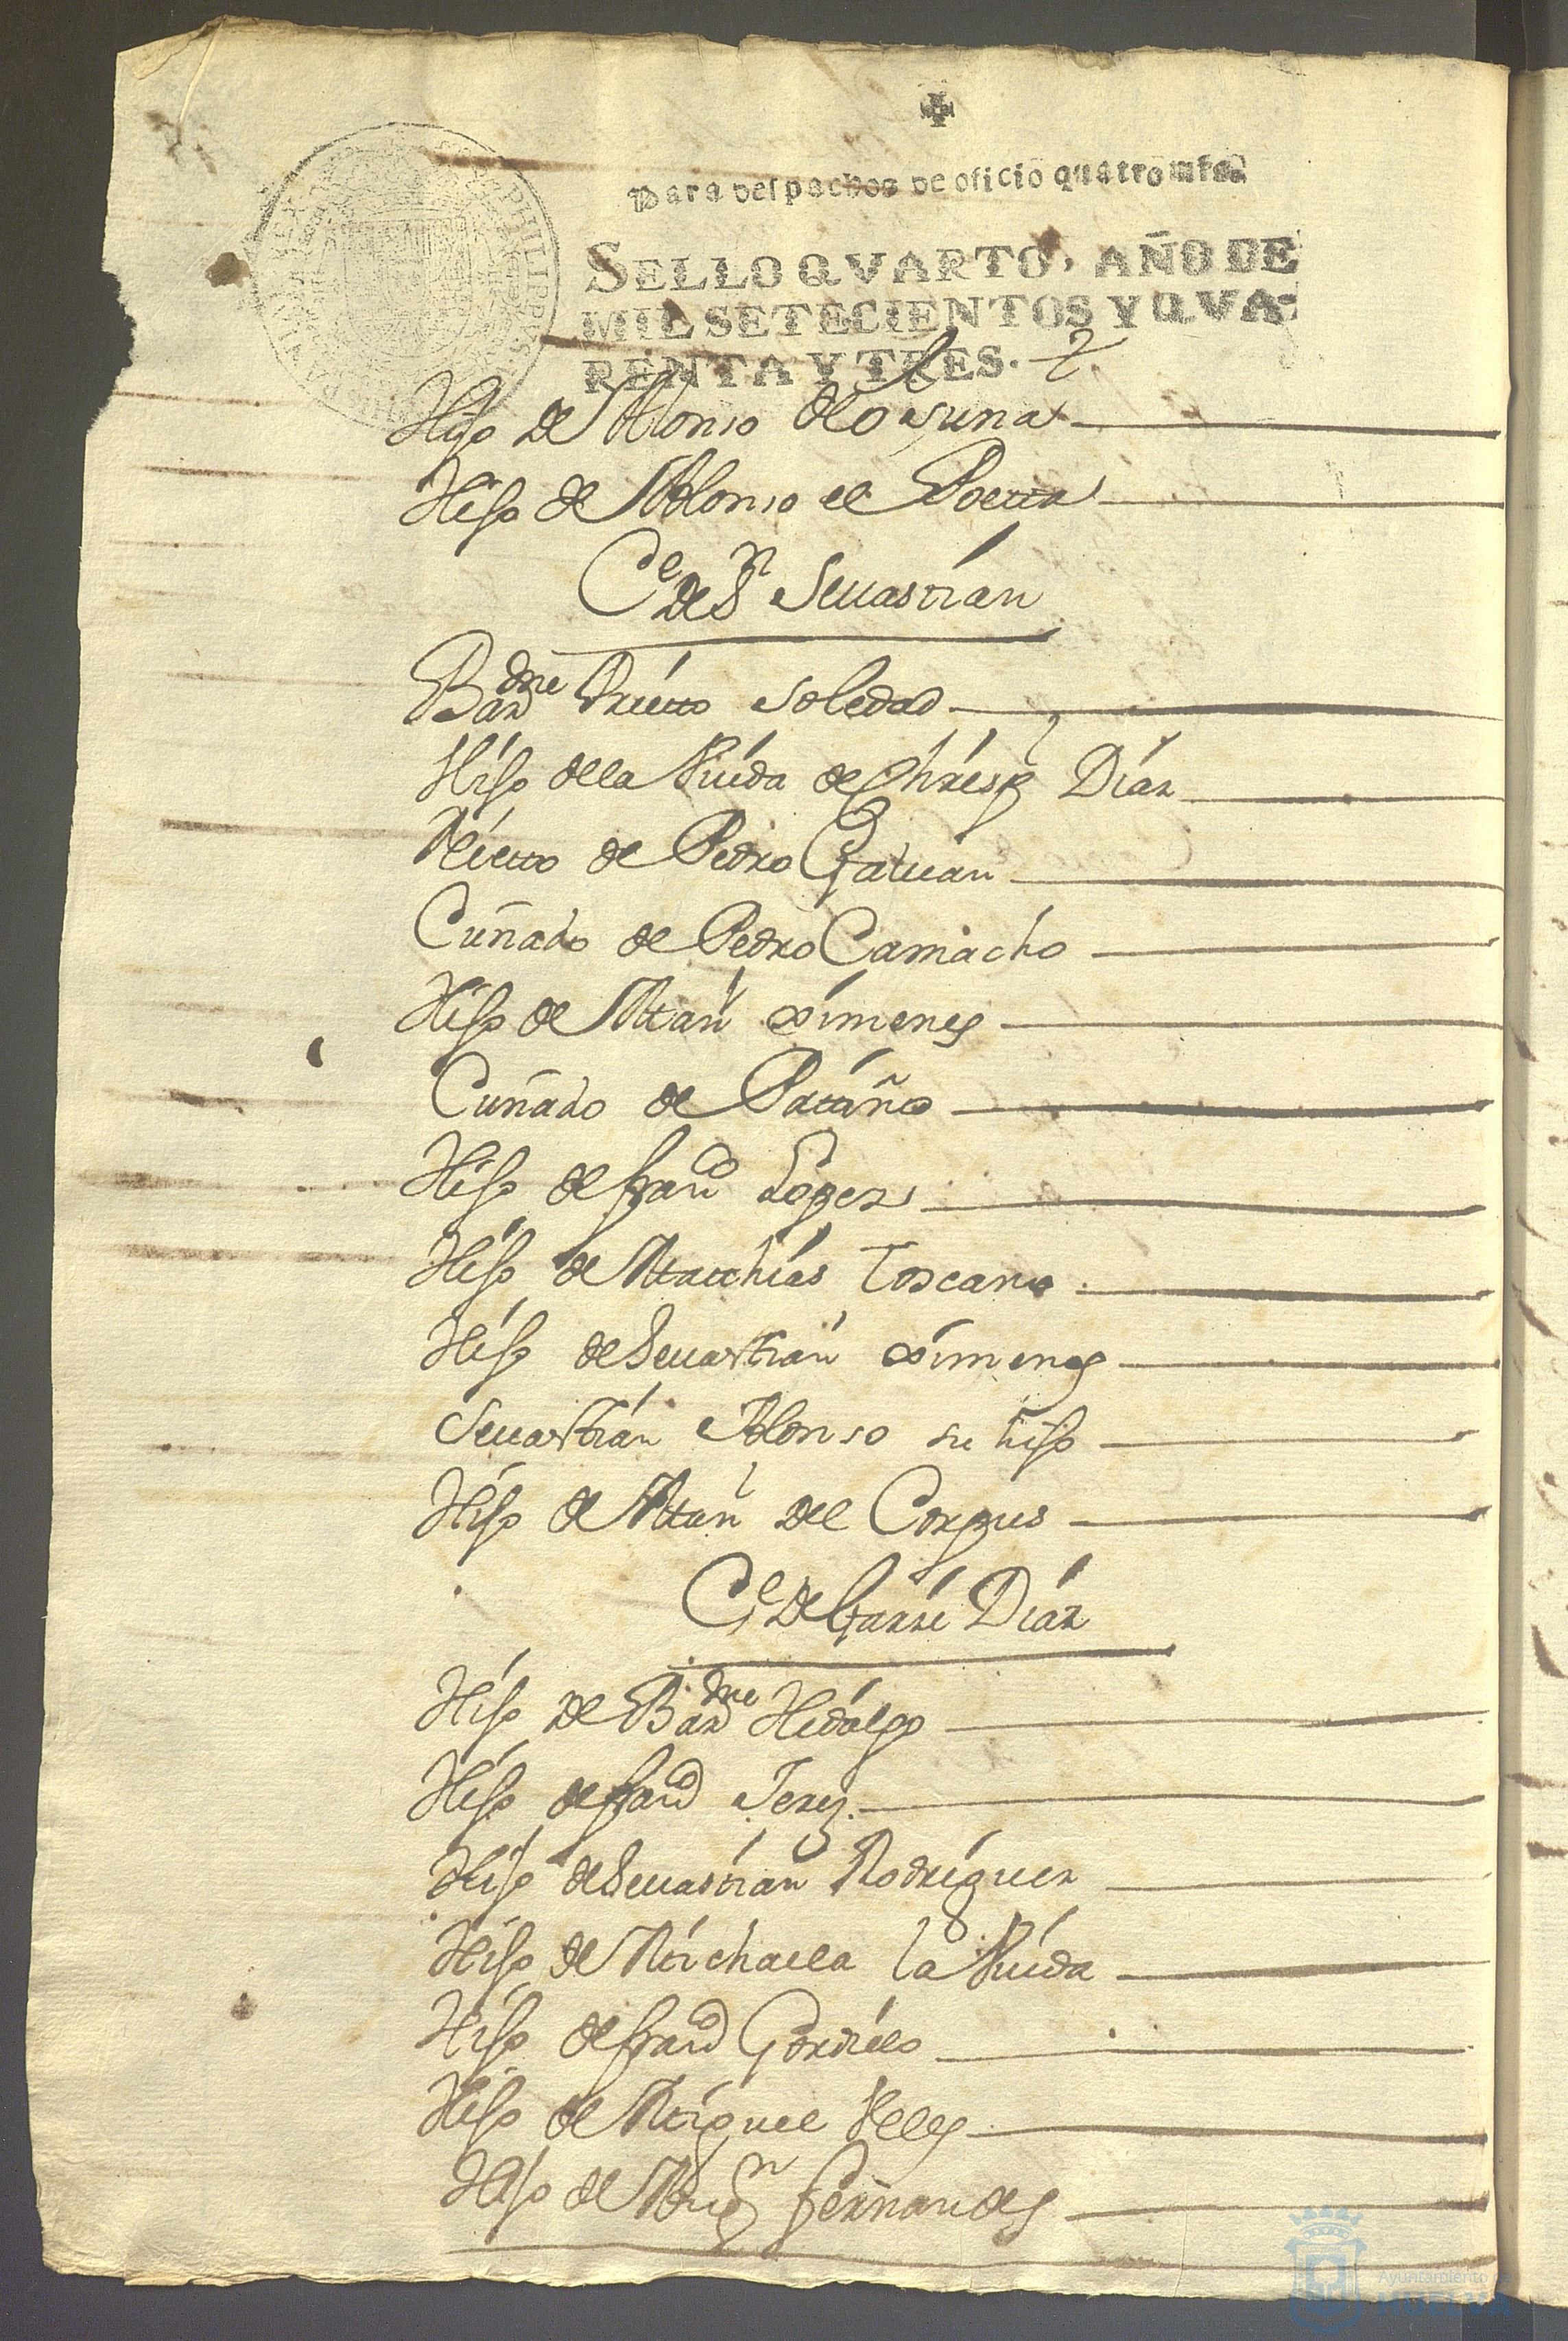 Para despachos de oficio quatro mrs.
SELLO QVARTO, AÑO DE
MIL SETECIENTOS Y QVA-
RENTA Y TRES.
PHILIPPVS
Hijo de Alonso de Osuna
Hijo de Alonso el Poetta
Ce de Sn Sevastian
Bardme Prietto Soledad
Hijo de la Viuda de Chrisp Diaz
Nietto de Pedro Galvan
Cuñado de Pedro Camacho
Hijo de Man Ximenes
Cuñado de Patiño
Hijo de Franco Lopez
Hijo de Matthias Toscano
Hijo de Sevastian Ximenes
Sevastian Alonso su hijo
Hijo de Man del Corpus
Ce de Garzi Diaz
Hijo de Bardme Hidalgo
Hijo de Franco Jerez
Hijo de Sevastian Rodriguez
Hijo de Michaela la Viuda
Hijo de Franco Gordillo
Hijo de Miguel Veles
Hijo de Fernandes
Ayuntamiento de
HUELVA